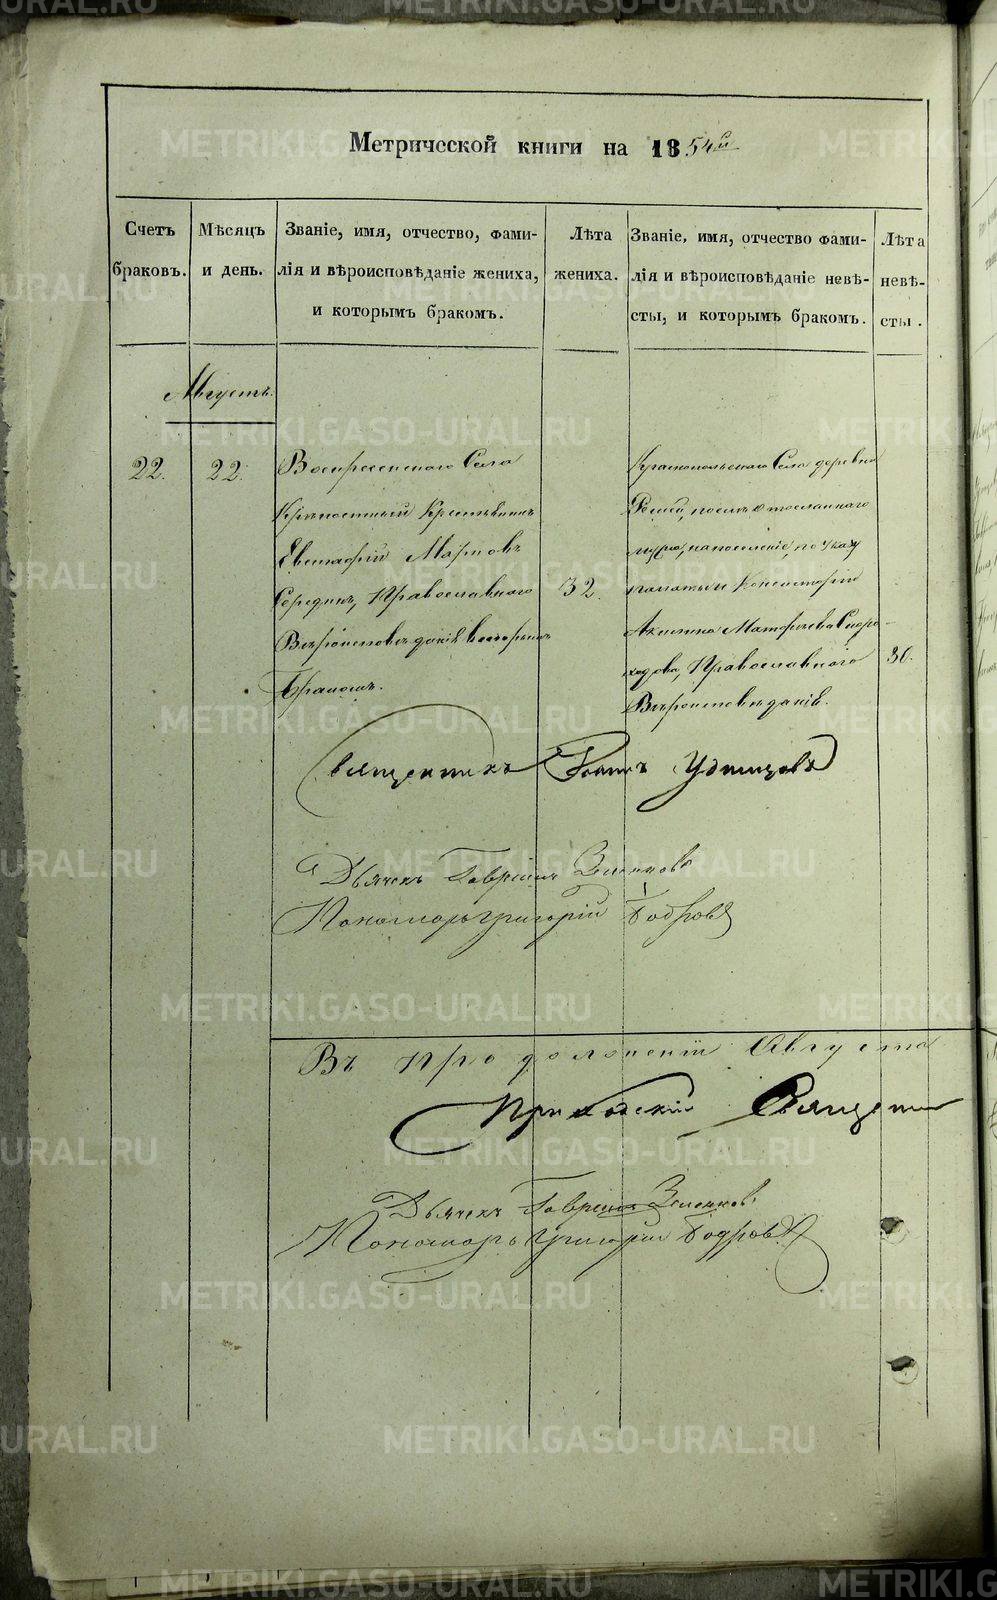 Метрической книги на 1854й
Счетъ браковъ.
Мѣсяцъ и день.
Званіе, имя, отчество, фами-
лія и вѣроисповѣданіе жениха,
и которымъ бракомъ.
Лѣта жениха.
Званіе, имя, отчество фами-
лія и вѣроисповѣданіе невѣ-
сты, и которымъ бракомъ.
Лѣта невѣ-
сты.
Августъ.
22.
22.
Воскресенскаго Села
Крѣпостный Крестьянинъ
Евстафій Марковъ
Середкинъ, Православнаго
Вѣроисповѣданія вторымъ
бракомъ.
32.
Краснопольскаго Села деревни
послѣ отосланнаго
мужа, на поселеніе, по указу
Консисторіи
Акилина Матфѣева Скоро-
ходова, Православнаго
Вѣроисповѣданія.
30.
Священникъ Іоаннъ Удинцовъ
Дьячекъ Гавріилъ
Пономарь Григорій Бодровъ
Въ продолженіи Августа
Приходскій Священни
Дьячекъ Гавріилъ
Пономарь Григорій Бодровъ
METRIKI.GASO-URAL.RU